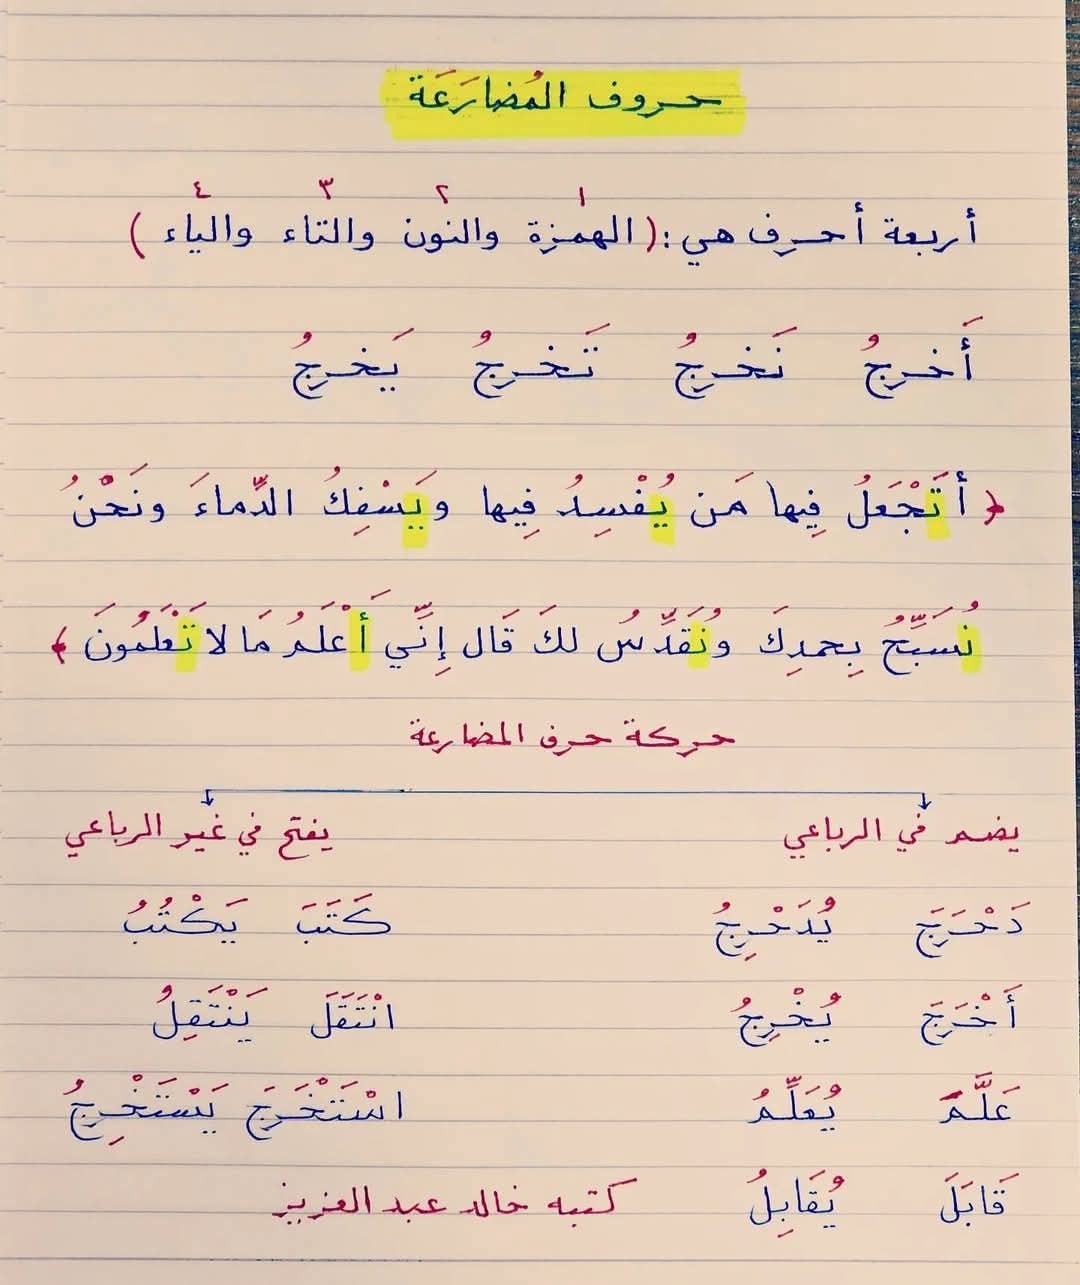 حروف المُضارَعَة
١ ٢ ٣ ٤
أربعة أحرف هي : ( الهمزة والنون والتاء والياء )
أَخرجُ نَخرجُ تَخرجُ يَخرجُ
﴿ أتَجْعَلُ فِيها مَن يُفْسِدُ فِيها ويَسْفِكُ الدِّماءَ ونَحْنُ
نُسَبِّحُ بِحمدِكَ ونُقَدِّسُ لكَ قَال إِنِّي أَعْلَمُ مَا لا تَعْلَمُونَ ﴾
حركة حرف المضارعة
يضم في الرباعي يفتح في غير الرباعي
دَحْرَجَ يُدَحْرِجُ كَتَبَ يَكْتُبُ
أَخْرَجَ يُخْرِجُ انْتَقَلَ يَنْتَقِلُ
عَلَّمَ يُعَلِّمُ اسْتَخْرَجَ يَسْتَخْرِجُ
قَابَلَ يُقَابِلُ كتبه خالد عبد العزيز